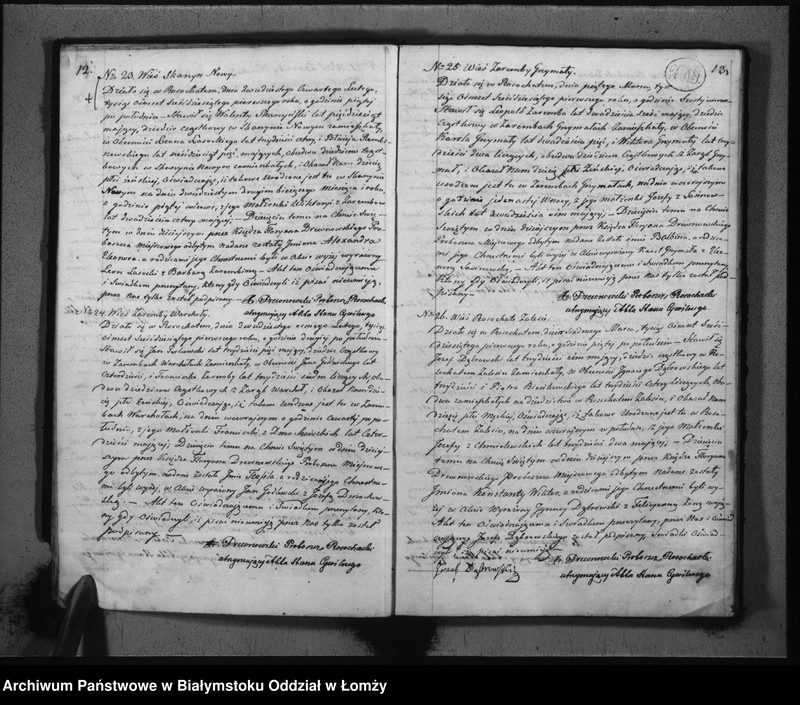 12.
No 23. Wieś Skaryn Nowy.
Działo się w Rosochatem, dnia dwudziestego czwartego Lutego,
tysiąc ośmset sześćdziesiątego pierwszego roku, o godzinie piątéj
po południu – Stawił się Walenty lat pięćdziesiąt
mający, dziedzic cząstkowy w Skarynie Nowym zamieszkały,
w obecności Leona Zaremba lat trzydzieści cztery, i
lat sześćdziesiąt pięć mających, obudwu dziedziców cząst
kowych w Skarynie Nowym zamieszkałych, i okazał Nam dziecię
płci żeńskiéj, oświadczając, iż takowe urodzone jest tu w Skarynie
Nowym na dniu dwudziestym drugim bieżącego miesiąca i roku,
o godzinie piątéj wieczór, z jego małżonki Wiktoryi z Zarembów
lat dwadzieścia cztery mającéj – Dziecięciu temu na Chrzcie Świę-
tym w dniu dzisiejszym przez Księdza Floryana Drewnowskiego Pro-
boszcza miejscowego odbytym nadane zostały Imiona Alexandra
Eleonora, a rodzicami jego Chrzestnemi byli w Akcie wyżéj wyrażony
Leon z Barbarą Zarembiną – Akt ten oświadczającemu
i świadkom przeczytany, którzy gdy oświadczyli iż pisać nieumieją,
przez Nas tylko został podpisany –
X. Drewnowski Proboszcz Rosochacki
utrzymujący Akta Stanu Cywilnego
No 24. Wieś Zaremby Warchoły.
Działo się w Rosochatem, dnia dwudziestego ósmego Lutego, tysiąc
ośmset sześćdziesiątego pierwszego roku, o godzinie drugiéj po południu –
Stawił się Jan lat trzydzieści pięć mający, dziedzic cząstkowy
w Zarembach Warchołach Zamieszkały, w obecności Jana Godlewskiego lat
czterdzieści, i Franciszka Zaremby lat trzydzieści siedm liczących, obu-
dwu dziedziców cząstkowych z Zaręb Warchoł, i okazał Nam dzie-
cię płci żeńskiéj, oświadczając, iż takowe urodzone jest tu w Zarem-
bach Warchołach, na dniu wczorajszym o godzinie czwartéj po po-
łudniu, z jego małżonki Franciszki z Dmochowskich lat czter-
dzieści mającéj; Dziecięciu temu na Chrzcie Świętym w dniu dzisiéj-
szym przez Księdza Floryana Drewnowskiego Proboszcza Miejscowe-
go odbytym nadane zostało Imie Teofila, a rodzicami jego Chrzestne-
mi byli wyżéj, w Akcie wyrażony Jan Godlewski z Józefą
– Akt ten oświadczającemu i świadkom przeczytany, któ-
rzy gdy oświadczyli, iż pisać nieumieją, przez Nas tylko został
podpisany –
X. Drewnowski Proboszcz Rosochacki
utrzymujący Akta Stanu Cywilnego
13.
No 25. Wieś Zaremby Grzymały.
Działo się w Rosochatem, dnia piątego Marca, tysiąc
ośmset sześćdziesiątego pierwszego roku, o godzinie
Stawił się Leopold Zaremba lat dwadzieścia sześć mający, dziedzic
cząstkowy w Zarembach Grzymałach Zamieszkały, w obecności
Karola Grzymały lat dwadzieścia pięć, i Wiktora Grzymały lat trzy-
dzieści dwa liczących, obudwu dziedziców cząstkowych z Zaręb Grzy-
mał, i okazał Nam dziecię płci żeńskiéj, oświadczając, iż takowe
urodzone jest tu w Zarembach Grzymałach, na dniu wczorajszym
o godzinie jedenastéj w nocy, z jego małżonki Józefy z
lat dwadzieścia ośm mającéj – Dziecięciu temu na Chrzcie
Świętym w dniu dzisiejszym przez Księdza Floryana Drewnowskiego
Proboszcza Miejscowego odbytym nadane zostało imie Balbina, a rodzica-
mi jego Chrzestnemi byli wyżéj w Akcie wyrażony Karol Grzymała z
– Akt ten oświadczającemu i świadkom przeczytany,
którzy gdy oświadczyli, iż pisać nieumieją, przez Nas tylko został pod-
pisany –
X. Drewnowski Proboszcz Rosochacki
utrzymujący Akta Stanu Cywilnego
No 26. Wieś Rosochate Zalesie.
Działo się w Rosochatem, dnia siódmego Marca, tysiąc ośmset sześć-
dziesiątego pierwszego roku, o godzinie piątéj po południu – Stawił się
Józef Dąbrowski lat trzydzieści ośm mający, dziedzic cząstkowy w Ro-
sochatem Zalesiu Zamieszkały, w obecności Ignacego Dąbrowskiego lat
trzydzieści i Piotra Bieńkowskiego lat trzydzieści cztery liczących, obu-
dwu zamieszkałych na dziedzictwie w Rosochatem Zalesiu, i okazał Nam
dziecię płci męskiéj, oświadczając, iż takowe urodzone jest tu w Roso-
chatem Zalesiu, na dniu wczorajszym w południe, z jego małżonki
Józefy z Chmielewskich lat trzydzieści dwa mającéj – Dziecięciu
temu na Chrzcie Świętym w dniu dzisiejszym przez Księdza Floryana
Drewnowskiego Proboszcza Miejscowego odbytym nadane zostały
Imiona Konstanty Wiktor, a rodzicami jego Chrzestnemi byli wy-
żéj w Akcie wyrażony Ignacy Dąbrowski z Felicyanną żoną
Akt ten oświadczającemu i świadkom przeczytany, przez Nas i oświad-
czającego Józefa Dąbrowskiego został podpisany, świadkowie oświad-
czyli iż pisać nieumieją –
X. Drewnowski Proboszcz Rosochacki
utrzymujący Akta Stanu Cywilnego
Józef Dąbrowski
Archiwum Państwowe w Białymstoku Oddział w Łomży